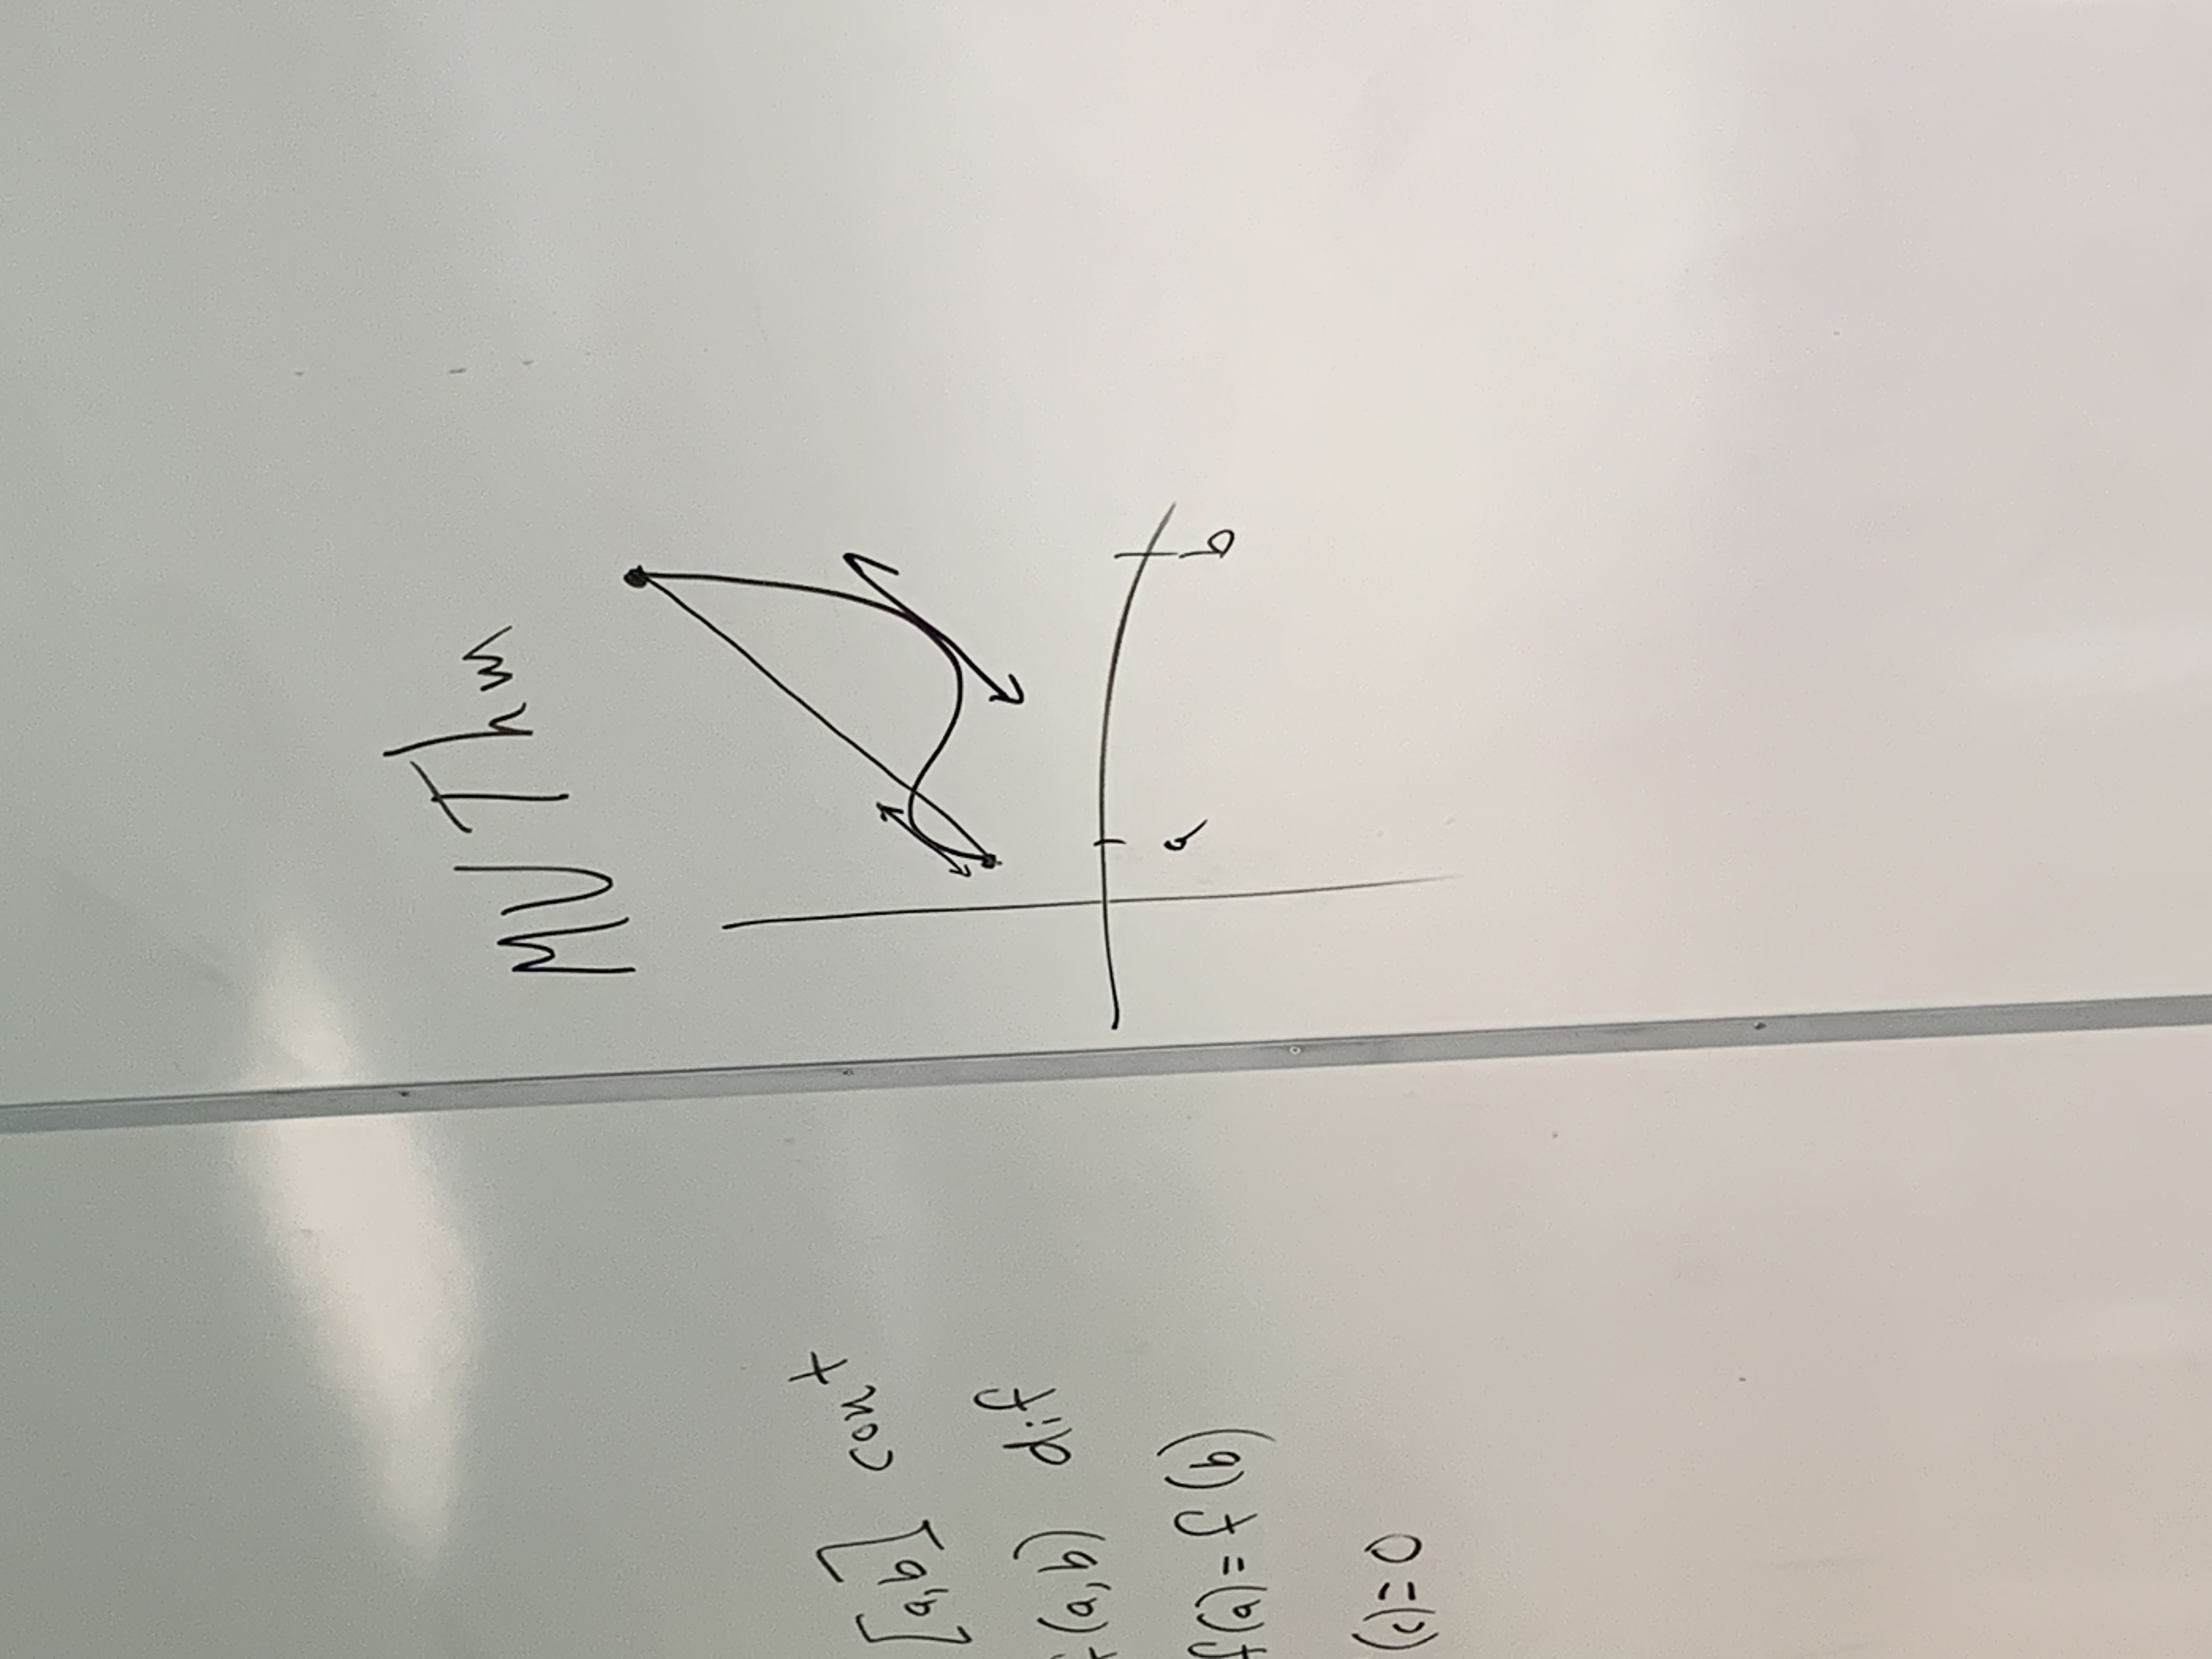 [a,b] cont
(a,b) dif
f(a)=f(b)
(c)=0
MVThm
a
b